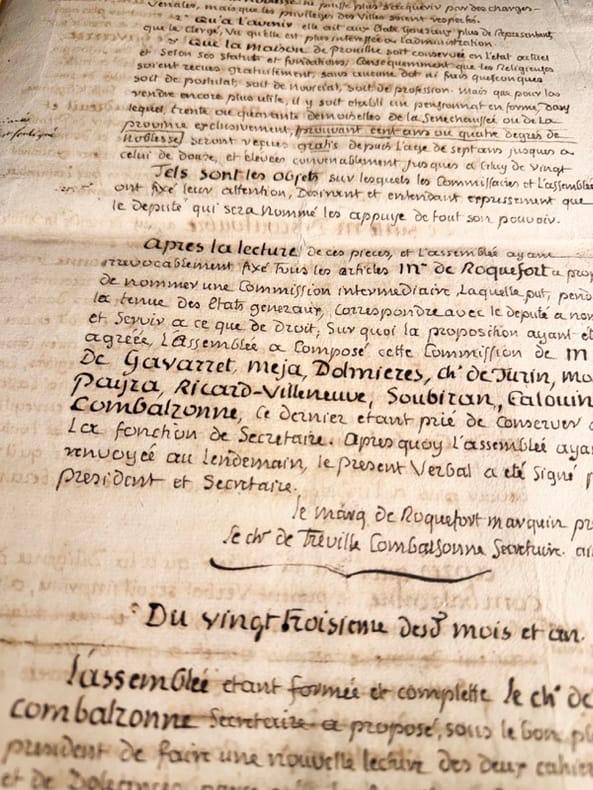 plus s'ecquerir par des charges
Venales, mais que les privileges des Villes soient respectés.
2° Qu'a l'avenir elle ait aux Etats Generaux plus de Representants
que le Clergé, Vu qu'elle est plus interessée a l'administration
Que la maison de Prouille soit conservée en l'etat actuel
et selon ses statuts et fondations; Consequemment que les Religieuses
soient recues gratuitement, sans aucune dot ni frais quelconques
soit de postulat, soit de noviciat, soit de profession. mais que pour la
rendre encore plus utile, il y soit etabli un pensionnat en forme, dans
lequel, trente ou quarante demoiselles de la Senechaussée ou de La
province exclusivement, prouvant cent ans ou quatre degrés de
Noblesse seront reçues gratis depuis L'age de sept ans jusques a
celui de douze, et elevées convenablement jusques a Celuy de vingt
Tels sont les objets sur lesquels les Commissaires et L'assemblée
ont fixé leur attention, Desirant et entendant expressement que
le deputé qui sera nommé les appuye de tout son pouvoir.
Après la lecture de ces pieces, et l'assemblée ayant
irrevocablement fixé Tous les articles M.r de Roquefort a prop
de nommer une Commission intermediaire, Laquelle put, pend
la tenue des Etats generaux, correspondre avec le deputé a nom
et Servir a ce que de Droit; Sur quoi la proposition ayant et
agréée, L'Assemblée a Composé cette Commission de M
De Gavarret, meja, Dolmieres, ch.r de Turin, Mo
Payra, Ricard-Villeneuve, Soubiran, Calouin
Combalzonne, ce dernier etant prié de Conserver
La fonction de Secretaire. Apres quoy L'assemblée aya
renvoyée au Lendemain, le present Verbal a eté Signé p
president et Secretaire.
le marq de Roquefort marquin pr
le ch.r de Treville Combalsonne Secretaire
Du vingt troisieme desd. mois et an.
L'assemblée etant formée et complette le ch.r de
Combalzonne Secretaire a proposé, sous le bon pl
president de faire une nouvelle lecture des deux cahier
et de Doleances